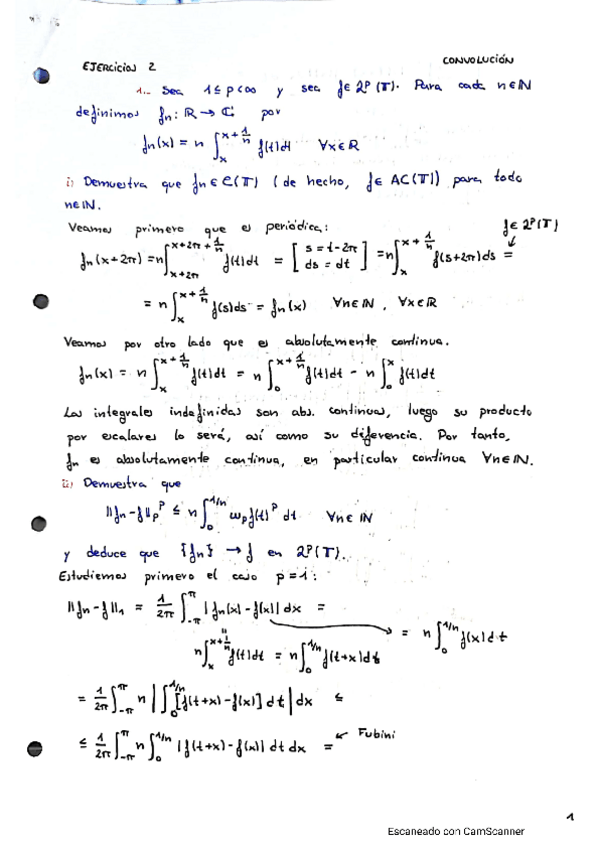 EJERCICIOS 2 CONVOLUCIÓN
1.- Sea 1 ≤ p < ∞ y sea f ∈ 𝓛^p(T). Para cada n ∈ ℕ
definimos f_n: ℝ → ℂ por
f_n(x) = n ∫_x^{x+1/n} f(t)dt ∀x ∈ ℝ
i) Demuestra que f_n ∈ C(T) (de hecho, f ∈ AC(T)) para todo
n ∈ ℕ.
Veamos primero que es periódica: f ∈ 𝓛^p(T)
f_n(x+2π) = n ∫_{x+2π}^{x+2π+1/n} f(t)dt = [s = t-2π ds = dt] = n ∫_x^{x+1/n} f(s+2π)ds =
= n ∫_x^{x+1/n} f(s)ds = f_n(x) ∀n ∈ ℕ, ∀x ∈ ℝ
Veamos por otro lado que es absolutamente continua.
f_n(x) = n ∫_x^{x+1/n} f(t)dt = n ∫_0^{x+1/n} f(t)dt - n ∫_0^x f(t)dt
Las integrales indefinidas son abs. continuas, luego su producto
por escalares lo será, así como su diferencia. Por tanto,
f_n es absolutamente continua, en particular continua ∀n ∈ ℕ.
ii) Demuestra que
||f_n - f||_p^p ≤ n ∫_0^{1/n} ω_p f(t)^p dt ∀n ∈ ℕ
y deduce que {f_n} → f en 𝓛^p(T).
Estudiemos primero el caso p = 1:
||f_n - f||_1 = 1/2π ∫_{-π}^{π} |f_n(x) - f(x)| dx =
n ∫_x^{x+1/n} f(t)dt = n ∫_0^{1/n} f(t+x)dt = n ∫_0^{1/n} f(x)dt
= 1/2π ∫_{-π}^{π} n | ∫_0^{1/n} [f(t+x) - f(x)] dt | dx ≤
≤ 1/2π ∫_{-π}^{π} n ∫_0^{1/n} |f(t+x) - f(x)| dt dx = ← Fubini
1
Escaneado con CamScanner